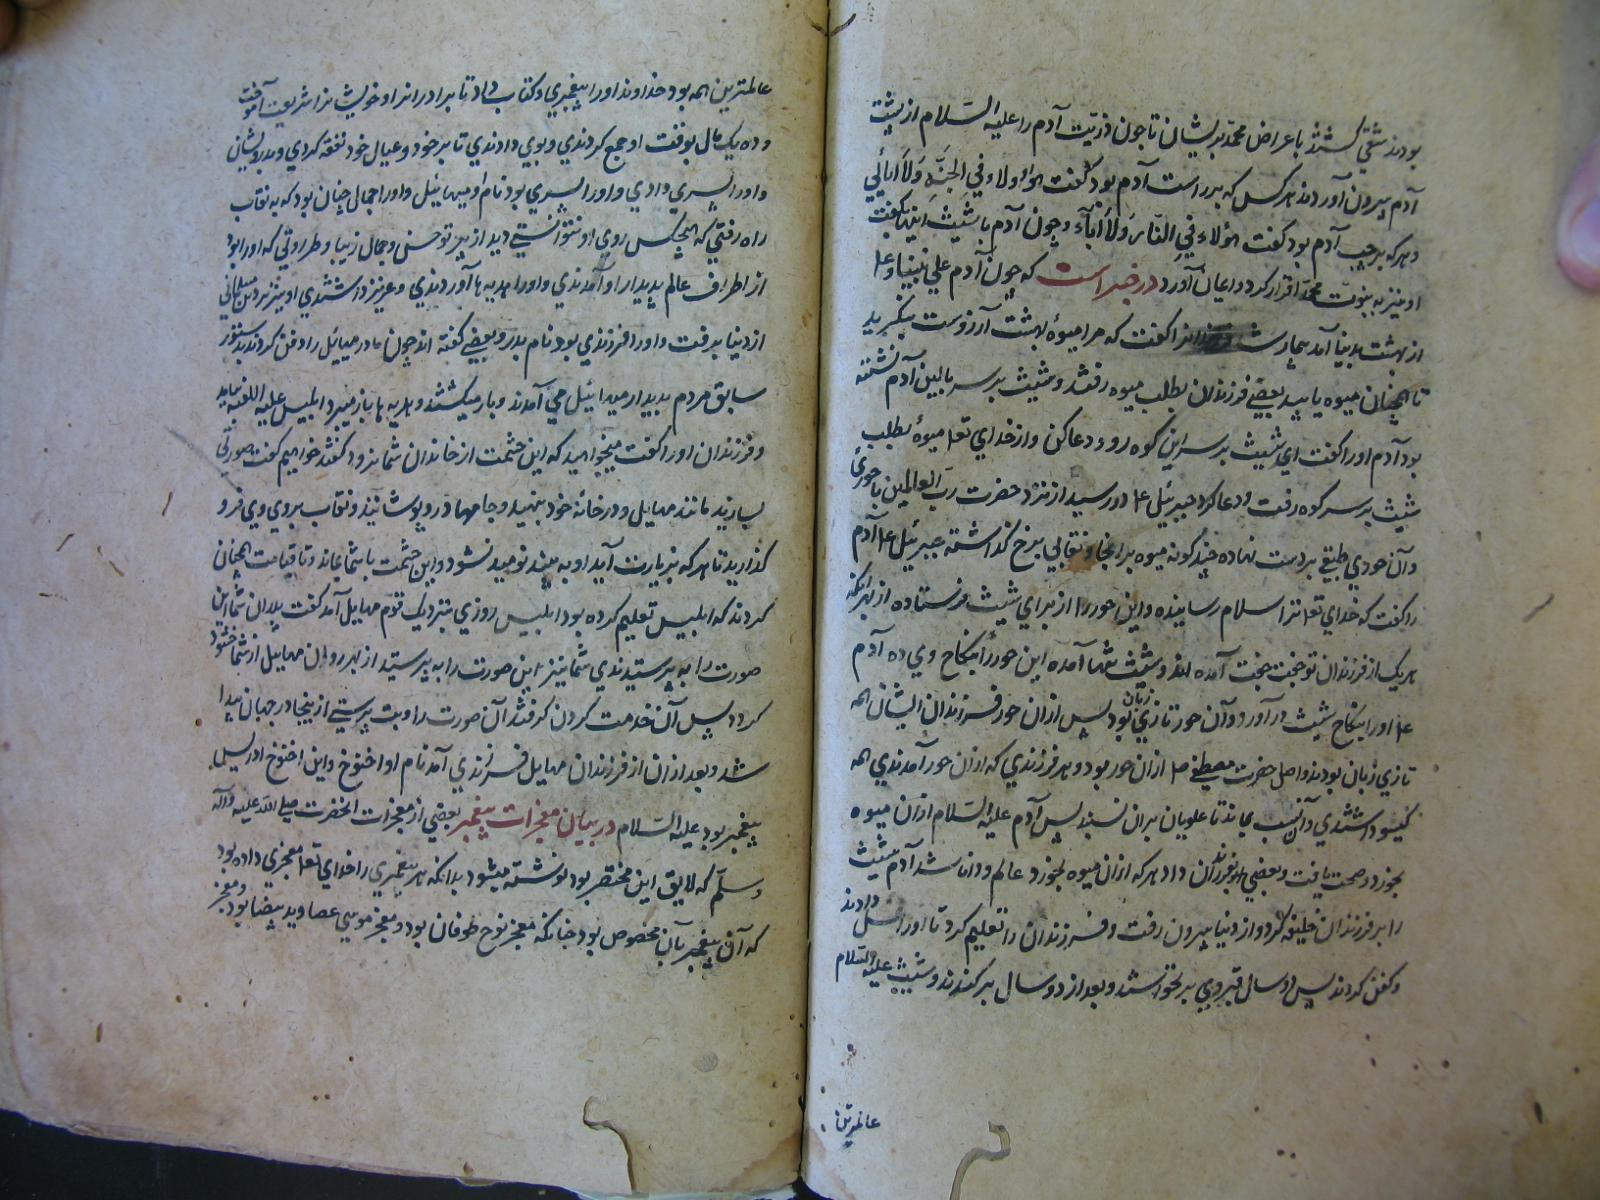 بودند شقی گشتند باعراض محمد بر ایشان تا چون ذریّت آدم را علیه السّلام از پشت
آدم بیرون آوردند هر کس که بر راست آدم بود گفت هؤلاء فی الجنّة ولا ابالی
و هر که بر چپ آدم بود گفت هؤلاء فی النّار ولا ابالی و چون آدم با شیث اینها بگفت
او نیز به نبوت محمد اقرار کرد و ایمان آورد در خبر است که چون آدم علی نبینا و ع
از بهشت بدنیا آمد بیمار شد فرزندانرا گفت که مرا میوهٔ بهشت آرزوست بنگرید
تا همچنان میوه یابید بعضی فرزندان بطلب میوه رفتند و شیث بر سر بالین آدم نشسته
بود آدم او را گفت ای شیث بر سر این کوه رو و دعا کن و از خدای تعا میوهٔ بطلب
شیث بر سر کوه رفت و دعا کرد جبرئیل ع در رسید از نزد حضرت رب العالمین با حوری
و آن حوری طبقی بر دست نهاده چند گونه میوه بر آنجا و نقابی برخ گذاشته جبرئیل ع آدم
را گفت که خدای تعا ترا سلام رسانیده و این حور را از برای شیث فرستاده از بهر آنکه
هر یک از فرزندان تو جفت جفت آمده اند و شیث تنها آمده این حور را بنکاح وی ده آدم
ع او را بنکاح شیث در آورد و آن حور تازی زبان بود پس از آن حور فرزندان ایشان همه
تازی زبان بودند و اصل حضرت مصطفی ص از آن حور بود و هر فرزندی که از آن حور آمدندی همه
گیسو داشتندی و آن نسب بماند تا علویان بر آن نسبند پس آدم علیه السّلام از آن میوه
بخورد و صحت یافت و بعضی بفرزندان داد هر که از آن میوه بخورد عالم و دانا شد آدم شیث
را بر فرزندان خلیفه کرد و از دنیا بیرون رفت و فرزندان را تعلیم کرد تا او را غسل دادند
و کفن کردند پس دو سال قبر وی بر نخواستند و بعد از دو سال بر کندند و شیث علیه السّلام
عالمترین
عالمترین همه بود خداوند او را پیغمبری و کتاب داد تا برادرانرا و خویشانرا شریعت آموخت
و ده یک مال بوقت او جمع کردندی و بوی دادندی تا بر خود و عیال خود نفقه کردی و بدرویشان
دادی و او را پسری بود نام او میهائیل و او را جمالی چنان بود که به نقاب
راه رفتی که هیچکس روی او نتوانستی دید از پرتو حسن و جمال زیبا و طراوتی که او را بود
از اطراف عالم بدیدار او آمدندی و او را هدیه ها آوردندی و عزیز داشتندی او نیز بر دین مسلمانی
از دنیا برفت و او را فرزندی بود نام بدرو بعضی گفته اند چون مادر میهائیل را دفن کردند بدستور
سابق مردم بدیدار میهائیل می آمدند و باز میگشتند و هدیه ها باز میبرد ابلیس علیه اللعنه بیامد
و فرزندان او را گفت میخواهید که این حشمت از خاندان شما نرود گفتند خواهیم گفت صورتی
بسازید مانند مهایل و در خانهٔ خود بنهید و جامها درو پوشانید و نقاب بروی وی فرو
گذارید تا هر که بزیارت آید او به بیند نومید نشود و این حشمت با شما بماند و تا قیامت همچنان
کردند که ابلیس تعلیم کرده بود ابلیس روزی بنزدیک قوم مهایل آمد گفت پدران شما این
صورت را به پرستیدندی شما نیز این صورت را به پرستید از بهر روان مهاییل از شما خشنود
گردد پس آن خدمت کردن گرفتند آن صورت را و بت پرستی از اینجا در جهان پیدا
شد و بعد از آن از فرزندان مهایل فرزندی آمد نام او اخنوخ و این اخنوخ ادریس
پیغمبر بود علیه السّلام در بیان معجزات پیغمبر بعضی از معجزات آنحضرت صلی الله علیه وآله
وسلّم که لایق این مختصر بود نوشته میشود بدانکه هر پیغمبری را خدای تعا معجزی داده بود
که آن پیغمبر بآن مخصوص بود چنانکه معجز نوح طوفان بود و معجز موسی عصا و ید بیضا بود و معجز